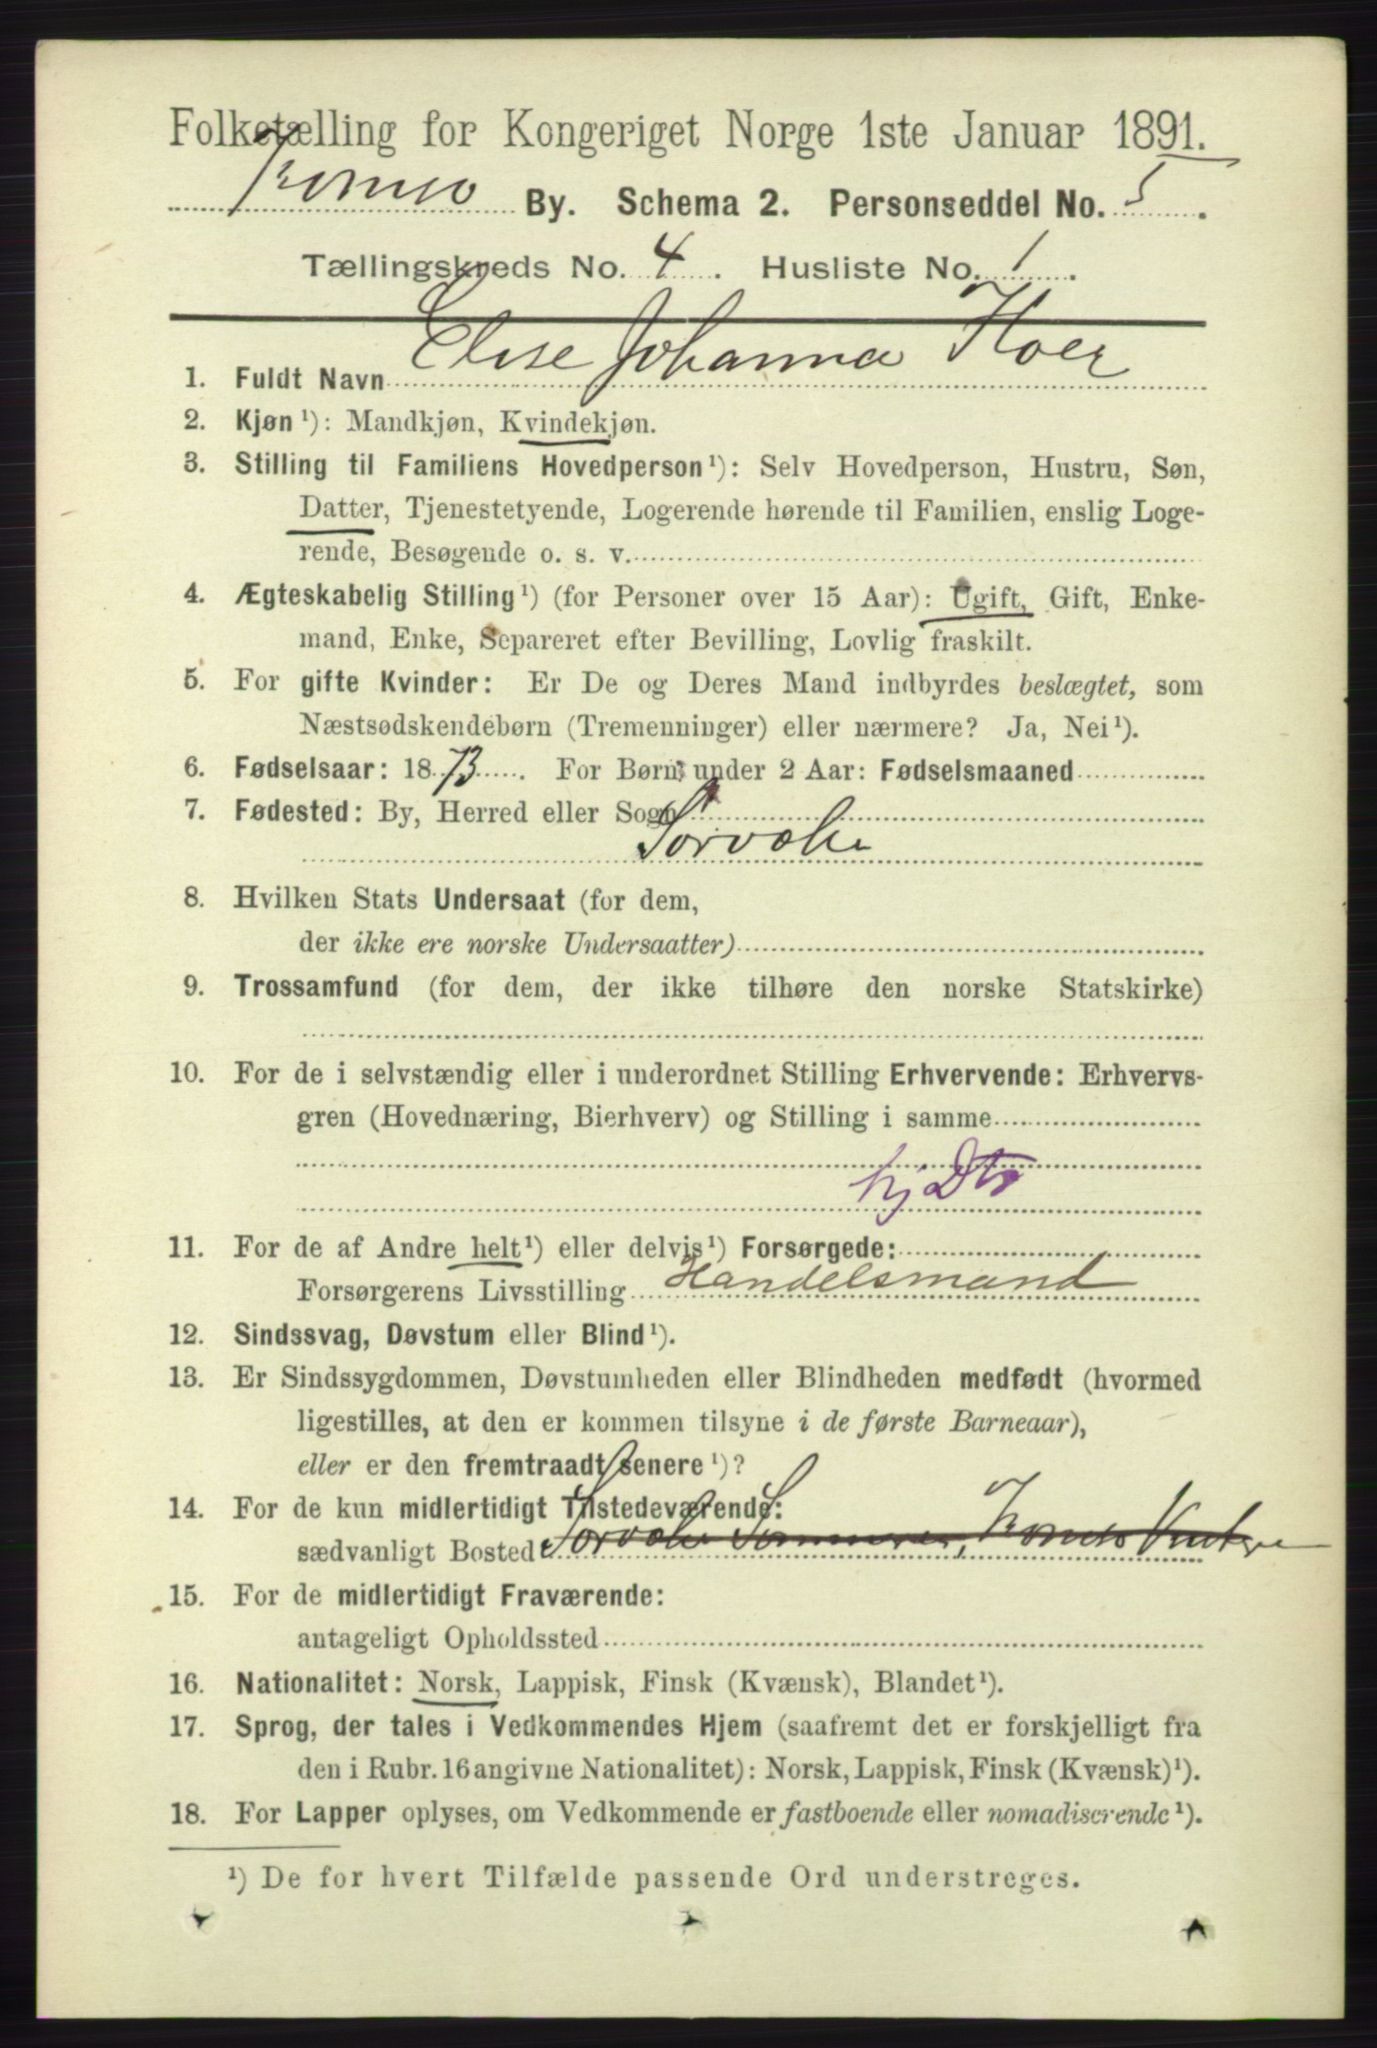 Folketælling for Kongeriget Norge 1ste Januar 1891.
Tromsø By. Schema 2. Personseddel No. 5.
Tællingskreds No. 4. Husliste No. 1.
1. Fuldt Navn Elise Johanna Hoer
2. Kjøn¹): Mandkjøn, Kvindekjøn.
3. Stilling til Familiens Hovedperson¹): Selv Hovedperson, Hustru, Søn,
Datter, Tjenestetyende, Logerende hørende til Familien, enslig Loge-
rende, Besøgende o. s. v.
4. Ægteskabelig Stilling¹) (for Personer over 15 Aar): Ugift, Gift, Enke-
mand, Enke, Separeret efter Bevilling, Lovlig fraskilt.
5. For gifte Kvinder: Er De og Deres Mand indbyrdes beslægtet, som
Næstsødskendebørn (Tremenninger) eller nærmere? Ja, Nei¹).
6. Fødselsaar: 1873. For Børn under 2 Aar: Fødselsmaaned
7. Fødested: By, Herred eller Sogn
Sørvær
8. Hvilken Stats Undersaat (for dem,
der ikke ere norske Undersaatter)
9. Trossamfund (for dem, der ikke tilhøre den norske Statskirke)
10. For de i selvstændig eller i underordnet Stilling Erhvervende: Erhvervs-
gren (Hovednæring, Bierhverv) og Stilling i samme
hj Dtr
11. For de af Andre helt¹) eller delvis¹) Forsørgede:
Forsørgerens Livsstilling Handelsmand
12. Sindssvag, Døvstum eller Blind¹).
13. Er Sindssygdommen, Døvstumheden eller Blindheden medfødt (hvormed
ligestilles, at den er kommen tilsyne i de første Barneaar),
eller er den fremtraadt senere¹)?
14. For de kun midlertidigt Tilstedeværende:
sædvanligt Bosted Sørvær Sommeren, Tromsø Vinteren
15. For de midlertidigt Fraværende:
antageligt Opholdssted
16. Nationalitet: Norsk, Lappisk, Finsk (Kvænsk), Blandet¹).
17. Sprog, der tales i Vedkommendes Hjem (saafremt det er forskjelligt fra
den i Rubr. 16 angivne Nationalitet): Norsk, Lappisk, Finsk (Kvænsk)¹).
18. For Lapper oplyses, om Vedkommende er fastboende eller nomadiserende¹).
¹) De for hvert Tilfælde passende Ord understreges.